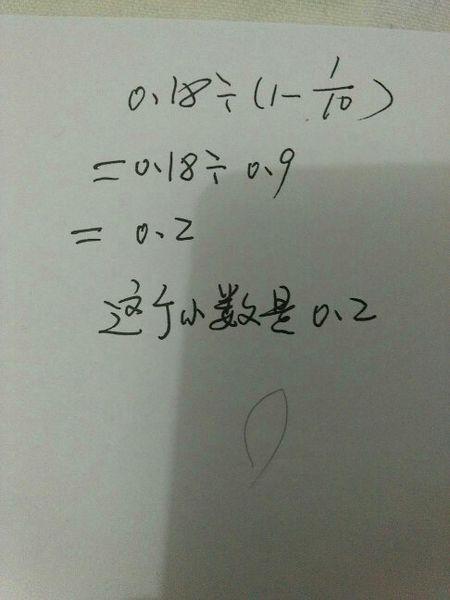 0.18÷(1-1/10)
=0.18÷0.9
=0.2
这个小数是0.2